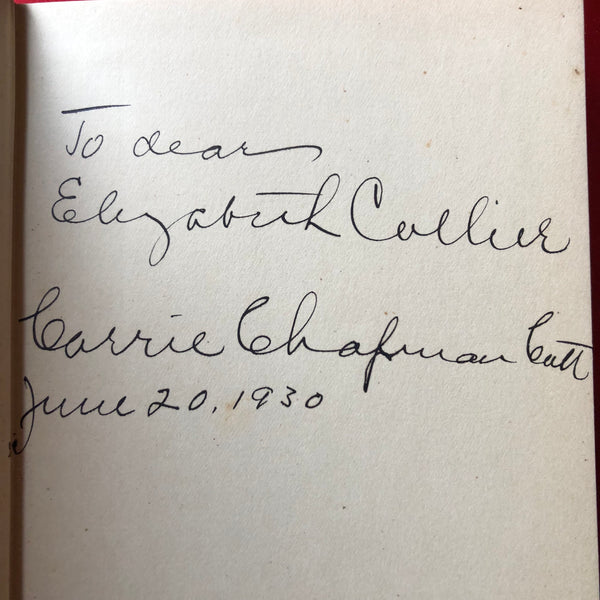 To dear
Elizabeth Collier
Carrie Chapman Catt
June 20, 1930